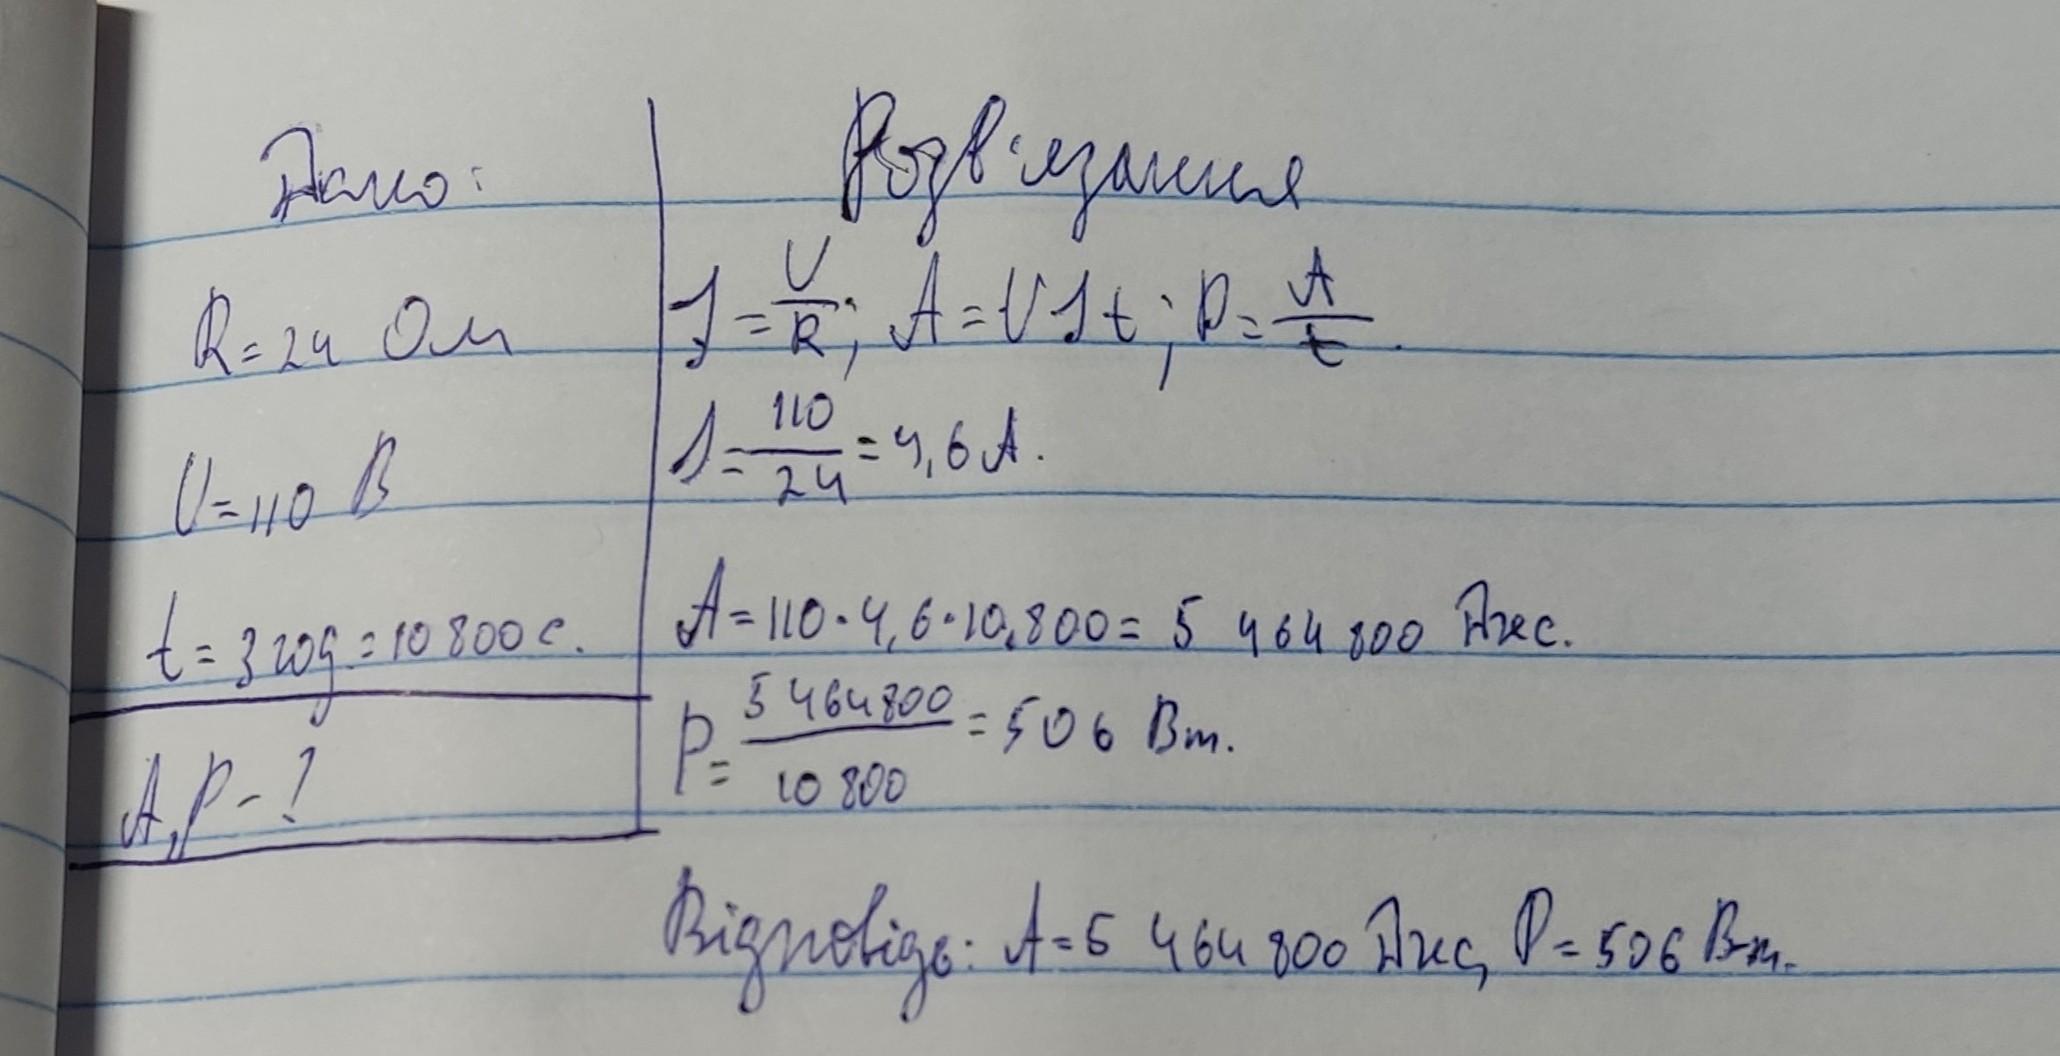 Дано:
R=24 Ом
U=110 В
t=3 год.=10 800 с.
A,P-?
Розв'язання
I=U/R; A=UIt; P=A/t.
I=110/24=4,6 А.
A=110·4,6·10,800= 5 464 800 Дж.
P=5 464 800/10 800=506 Вт.
Відповідь: A=5 464 800 Дж, P=506 Вт.